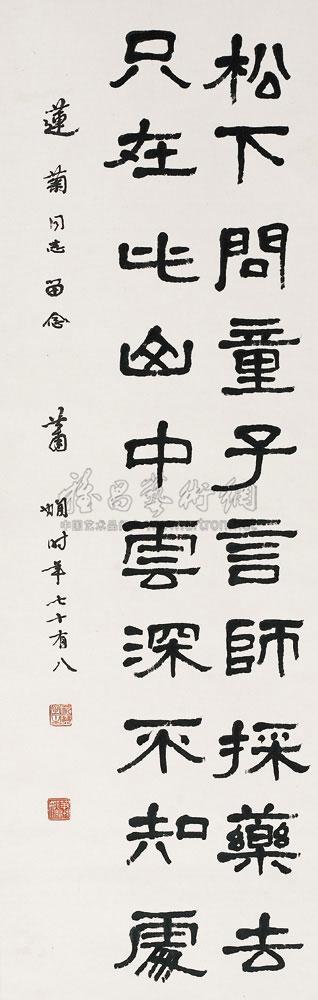 松下問童子言師採藥去
只在此山中雲深不知處
蓮菊同志留念 蕭嫻時年七十有八
雅昌藝術網